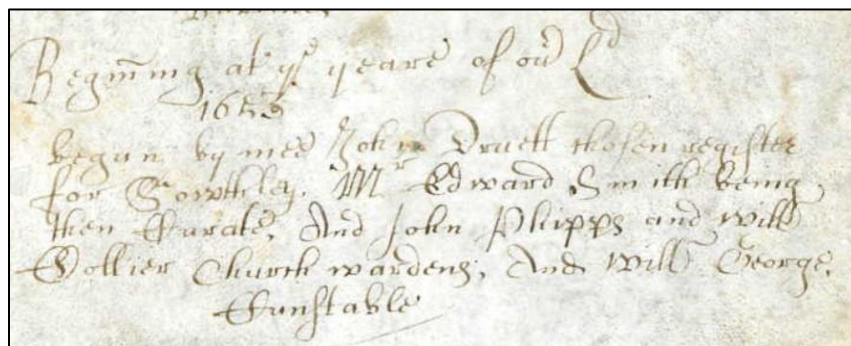 Begining at ye yeare of our Ld
1653
begun by mee John Druett chosen register
for Sowthley. Mr Edward Smith being
then Curate, And John Phipps and Will
Collier Church wardens, And Will George,
Cunstable